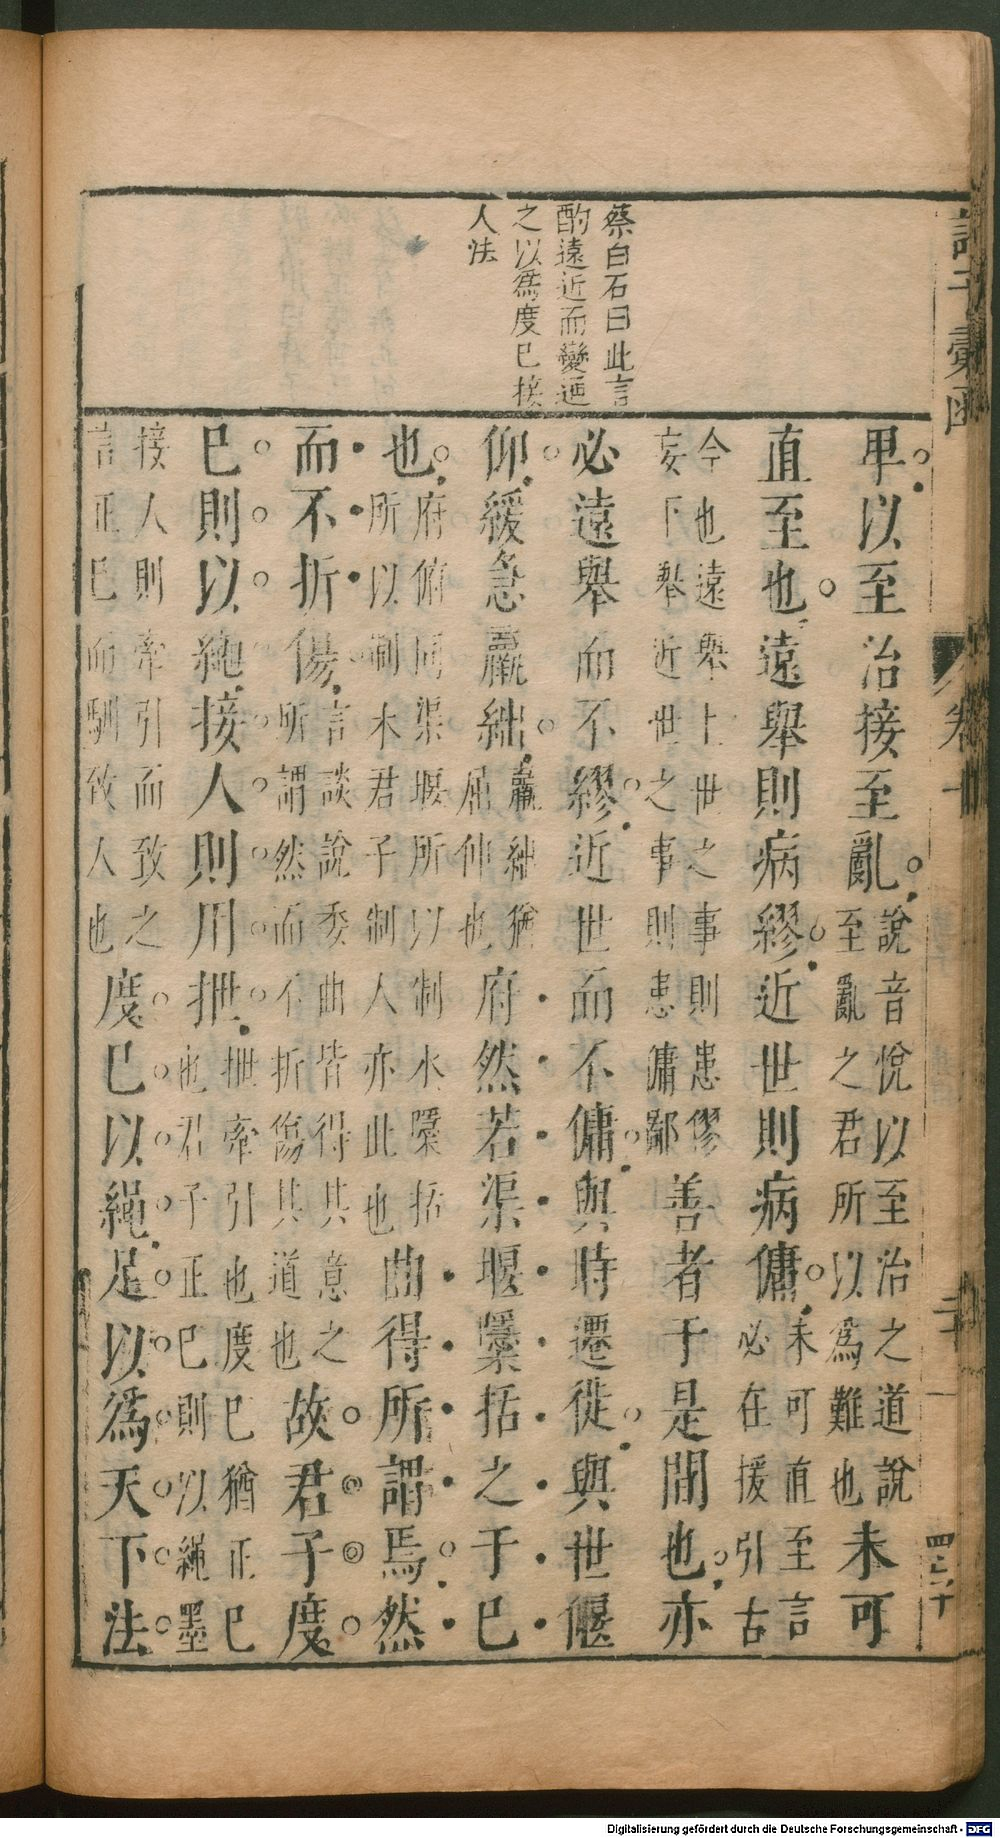 蔡白石曰此言
酌遠近而變通
之以爲度已接
人法
卑以至治接至亂說音悅以至治之道說至亂之君所以爲難也未可
直至也遠舉則病繆近世則病傭未可直至言必在援引古
今也遠舉上世之事則患繆妄下舉近世之事則患傭鄙善者于是間也亦
必遠舉而不繆近世而不傭與時遷徙與世偃
仰緩急羸絀羸絀猶屈伸也府然若渠堰檃括之于已
也府俯同渠堰所以制水檃括所以制木君子制人亦此也曲得所謂焉然
而不折傷言談說委曲皆得其意之所謂然而不折傷其道也故君子度
已則以繩接人則用抴抴牽引也度已猶正已也君子正已則以繩墨
接人則牽引而致之言正已而馴致人也度已以繩足以爲天下法
諸子彙函
卷十
二十一
四二十
Digitalisierung gefördert durch die Deutsche Forschungsgemeinschaft - DFG